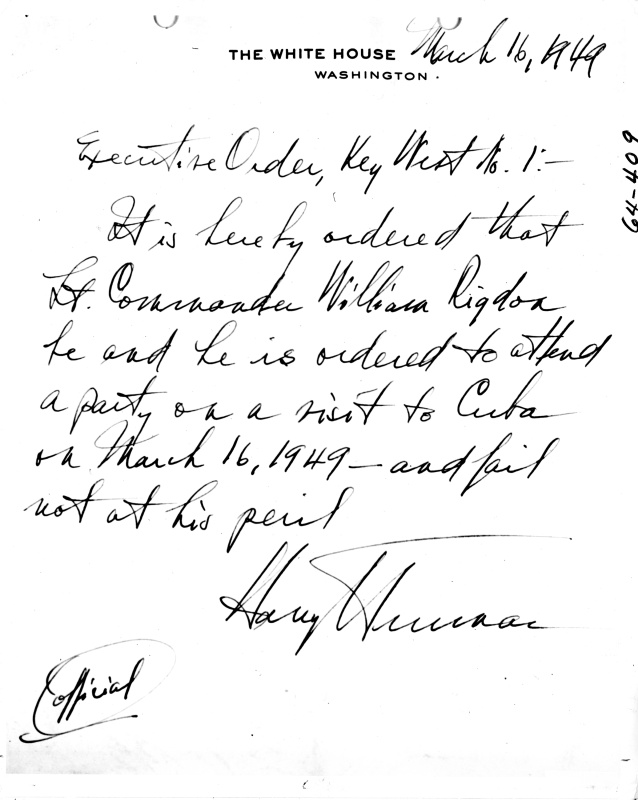 THE WHITE HOUSE March 16, 1949
WASHINGTON
64-409
Executive Order, Key West No. 1:—
It is hereby ordered that
Lt. Commander William Rigdon
be and he is ordered to attend
a party on a visit to Cuba
on March 16, 1949 — and fail
not at his peril
Harry Truman
Official